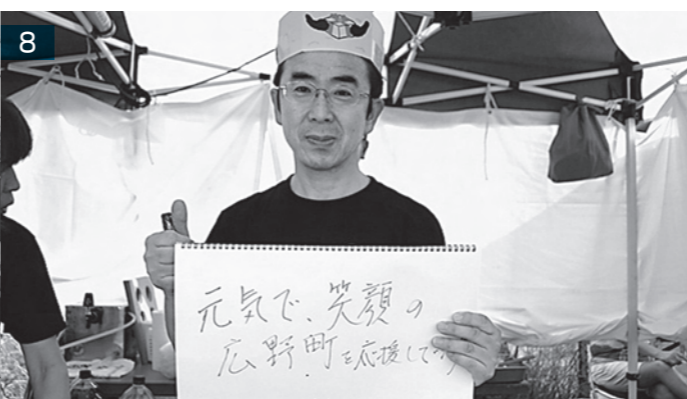 8
元気で、笑顔の
広野町を応援して